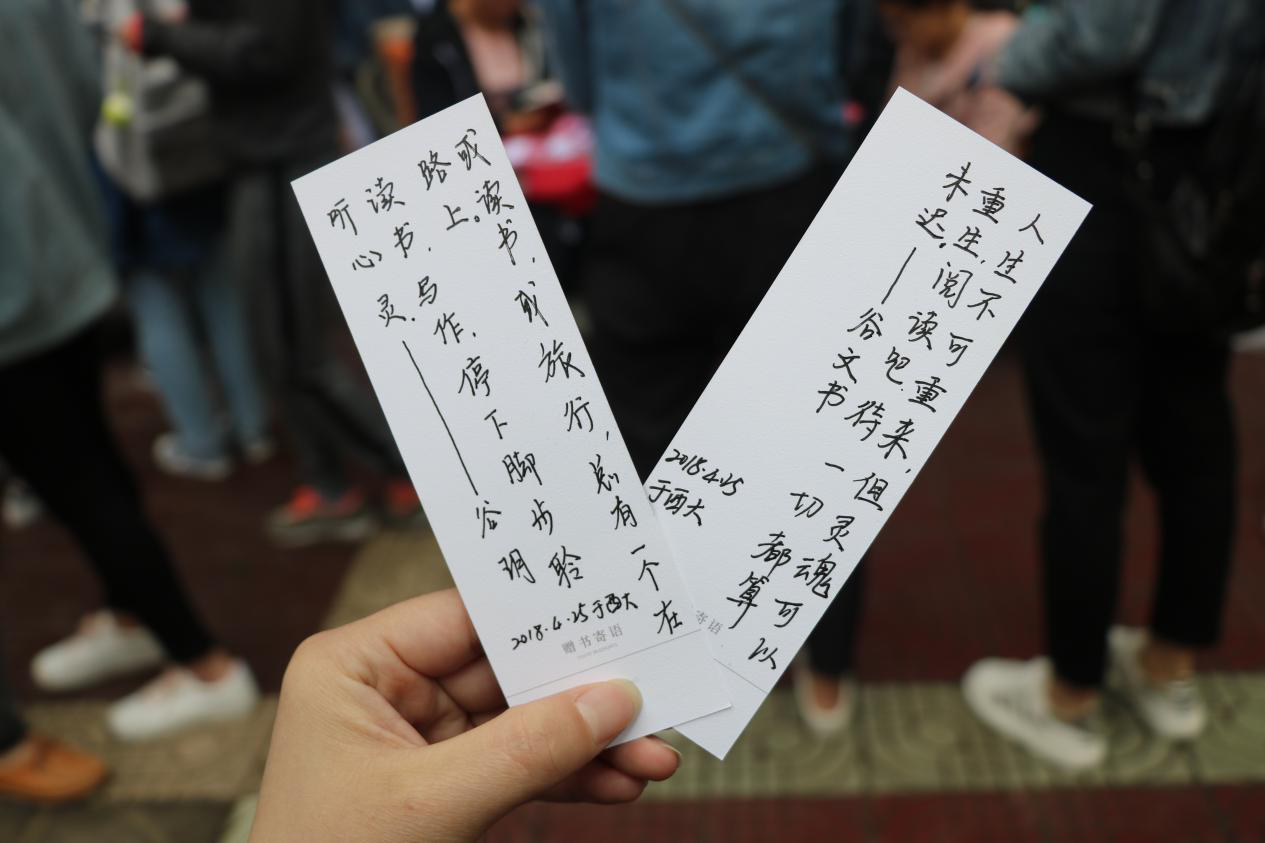 或读书,或旅行,总有一个在
路上。
读书,写作,停下脚步聆
听心灵.——谷玥
2018.4.25于西大
赠书寄语
人生不可重来,但灵魂可以
重生,阅读吧,待一切都算
未迟。——谷文书
2018.4.25
于西大
寄语